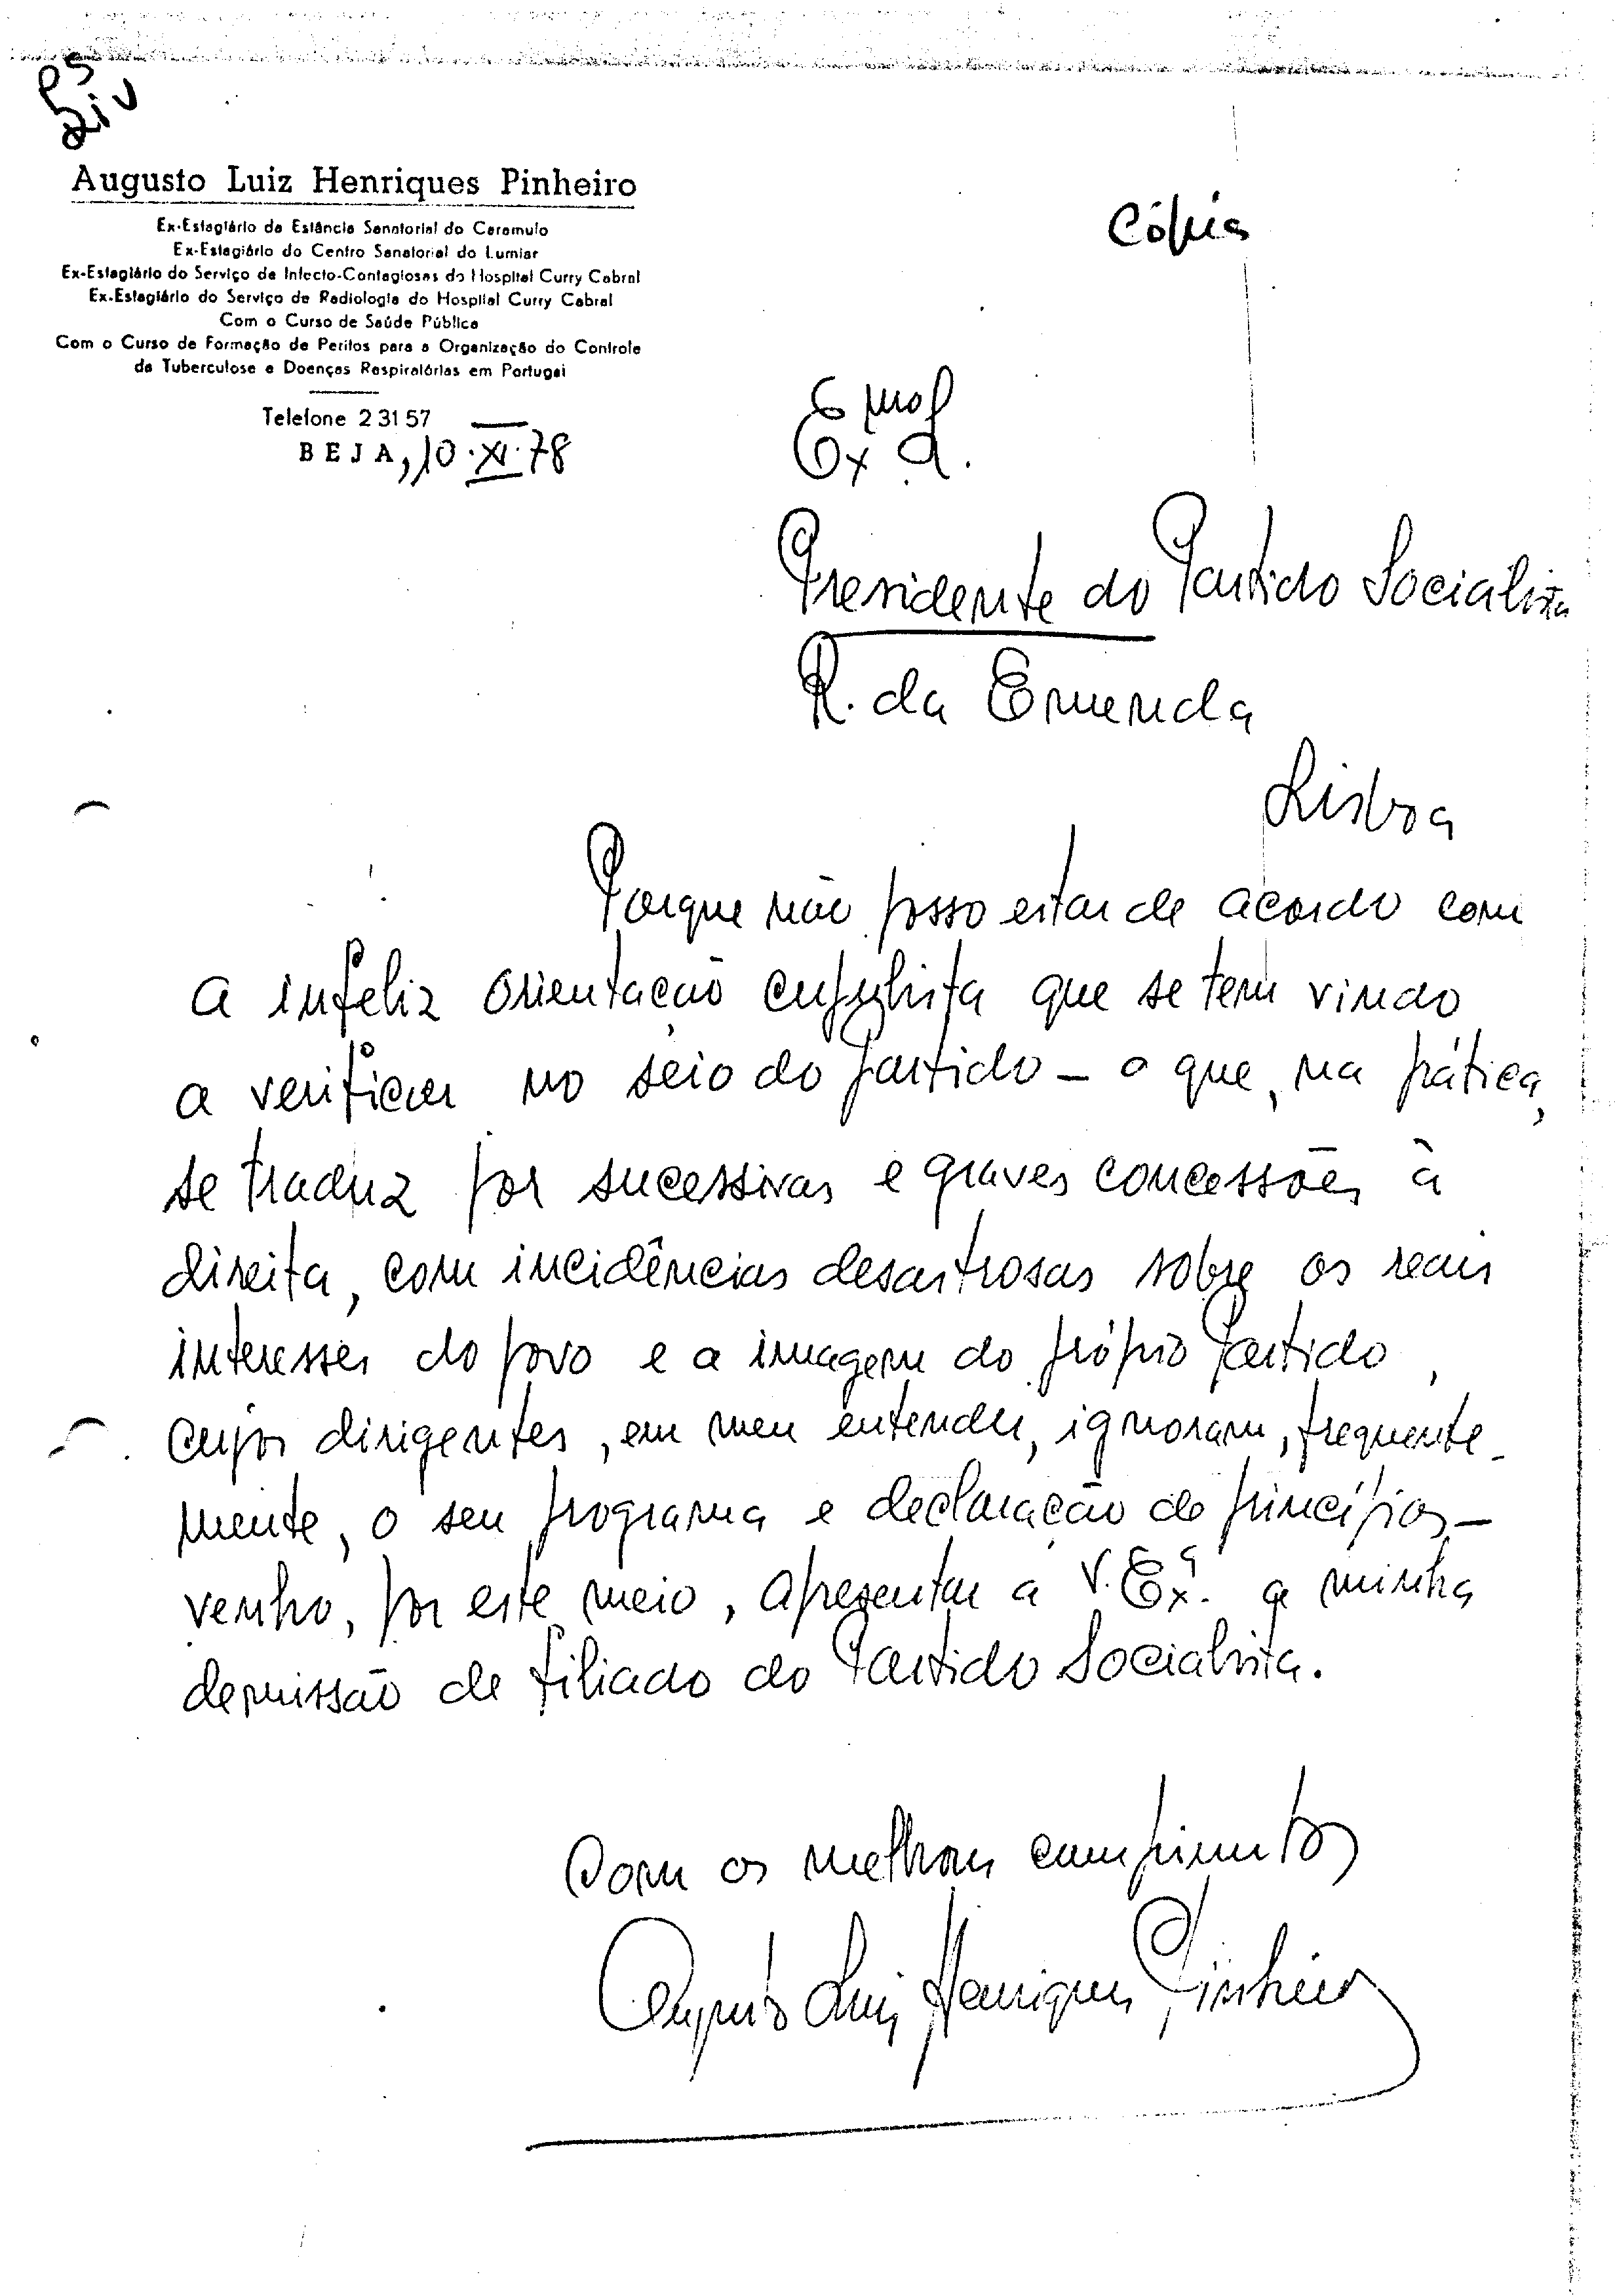 PS
Div
Augusto Luiz Henriques Pinheiro
Ex-Estagiário da Estância Sanatorial do Caramulo
Ex-Estagiário do Centro Sanatorial do Lumiar
Ex-Estagiário do Serviço de Infecto-Contagiosas do Hospital Curry Cabral
Ex-Estagiário do Serviço de Radiologia do Hospital Curry Cabral
Com o Curso de Saúde Pública
Com o Curso de Formação de Peritos para a Organização do Controle
da Tuberculose e Doenças Respiratórias em Portugal
Telefone 2 31 57
BEJA, 10.XI.78
Cópia
Exmo
Presidente do Partido Socialista
R. da Emenda
Lisboa
Porque não posso estar de acordo com
a infeliz orientação que se tem vindo
a verificar no seio do Partido - o que, na prática,
se traduz por sucessivas e graves concessões à
direita, com incidências desastrosas sobre os reais
interesses do povo e a imagem do próprio Partido,
cujos dirigentes, em meu entender, ignoram, frequente-
mente, o seu programa e declaração de princípios -
venho, por este meio, apresentar a V. Exª. a minha
demissão de filiado do Partido Socialista.
Com os melhores cumprimentos
Augusto Luiz Henriques Pinheiro